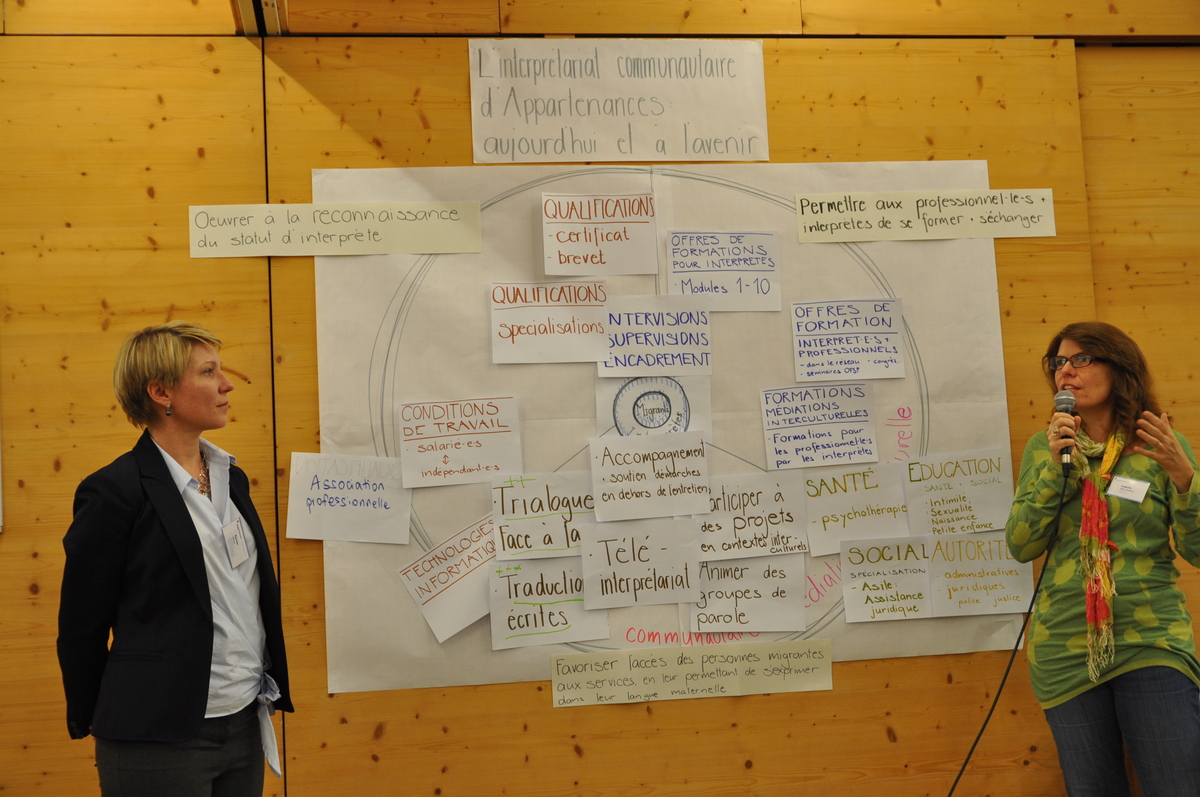 L'interprétariat communautaire
d'Appartenances
aujourd'hui et à l'avenir
Oeuvrer à la reconnaissance
du statut d'interprète
Permettre aux professionnel·le·s +
interprètes de se former + s'échanger
QUALIFICATIONS
- certificat
- brevet
OFFRES DE
FORMATIONS
POUR INTERPRÈTES
· Modules 1-10
QUALIFICATIONS
Spécialisations
INTERVISIONS
SUPERVISIONS
ENCADREMENT
OFFRES DE
FORMATION
INTERPRÈT·E·S +
PROFESSIONNELS
- dans le réseau · congrès
- séminaires OFSP
Migrant
FORMATIONS
MÉDIATIONS
INTERCULTURELLES
· Formations pour
les professionnel·le·s
par les interprètes
CONDITIONS
DE TRAVAIL
Salarié·e·s
↕
indépendant·e·s
Association
professionnelle
TECHNOLOGIES
INFORMATIQ
++
Trialogue
Face à fa
+++
Traductio
écrites
· Accompagnement
+ soutien démarches
en dehors de l'entretien
· Télé -
interprétariat
Participer à
des projets
en contextes inter-
culturels
Animer des
groupes de
parole
SANTÉ
- psychothérapie
ÉDUCATION
SANTÉ + SOCIAL
· Intimité
· Sexualité
· Naissance
· Petite enfance
SOCIAL
SPÉCIALISATION
- Asile
Assistance
juridique
AUTORIT
- administratives
- juridiques
- police - justice
urelle
médiati
communautaire
Favoriser l'accès des personnes migrantes
aux services, en leur permettant de s'exprimer
dans leur langue maternelle